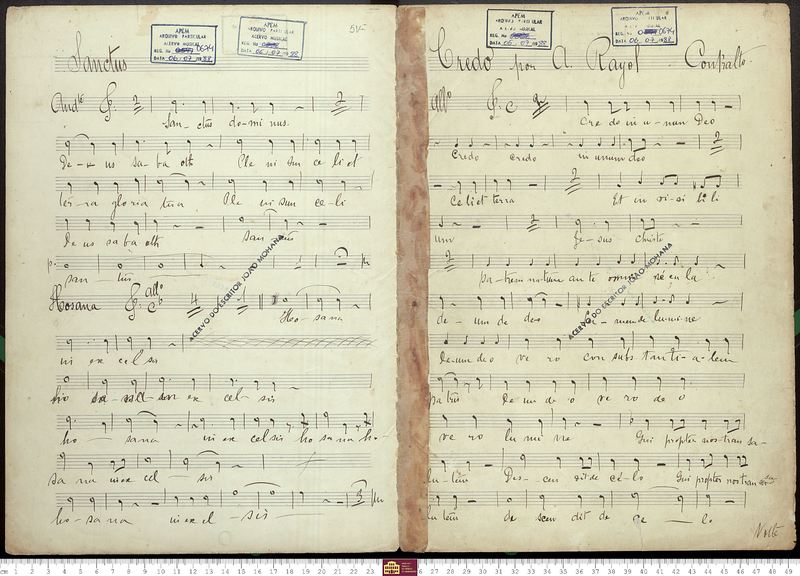 APEM
ARQUIVO PARTICULAR
ACERVO MUSICAL
REG. No 0674
DATA 06/07/1988
APEM
ARQUIVO PARTICULAR
ACERVO MUSICAL
REG. No
DATA 06/07/1988
Sanctus
Andte 2 2
San - ctus do - mi nus.
De - us sa - ba oth Ple ni sun ce li et
ter - ra gloria tua Ple ni sun ce - li
De us sa ba oth san - ctus
san - tus
Hosana allo 4
Ho - sana
in ex cel sis
ho ex cel - sis
ho - sana in ex celsis ho sa na ho
sa na in ex cel - sis
ho - sa na in ex cel - sis
ACERVO DO ESCRITOR JOÃO MOHANA
APEM
ARQUIVO PARTICULAR
ACERVO MUSICAL
REG. No
DATA 06/07/1988
APEM
ARQUIVO PARTICULAR
ACERVO MUSICAL
REG. No 0674
DATA 06/07/1988
Credo por A. Rayol Contralto
Allo C
Cre do in u - num Deo
Credo credo in unum deo 2
Celi et terra Et in vi - si bi li
um 2 Je - sus Christe
2 pa - trem natum an te se cu la
de - um de deo lu - men de lu mi ne
De um deo ve ro con subs tan ti - a - lem
pa tris De um de o ve ro de o
ve ro lu mi ne Qui propter nos tran sa -
lu - tem Des - cen dit de ce - lo Qui propter nos tran
lu tem de scen dit de ce - lo
Volte
ACERVO DO ESCRITOR JOÃO MOHANA
cm 1 2 3 4 5 6 7 8 9 10 11 12 13 14 15 16 17 18 19 20 21 22 23 26 27 28 29 30 31 32 33 34 35 36 37 38 39 40 41 42 43 44 45 46 47 48 49